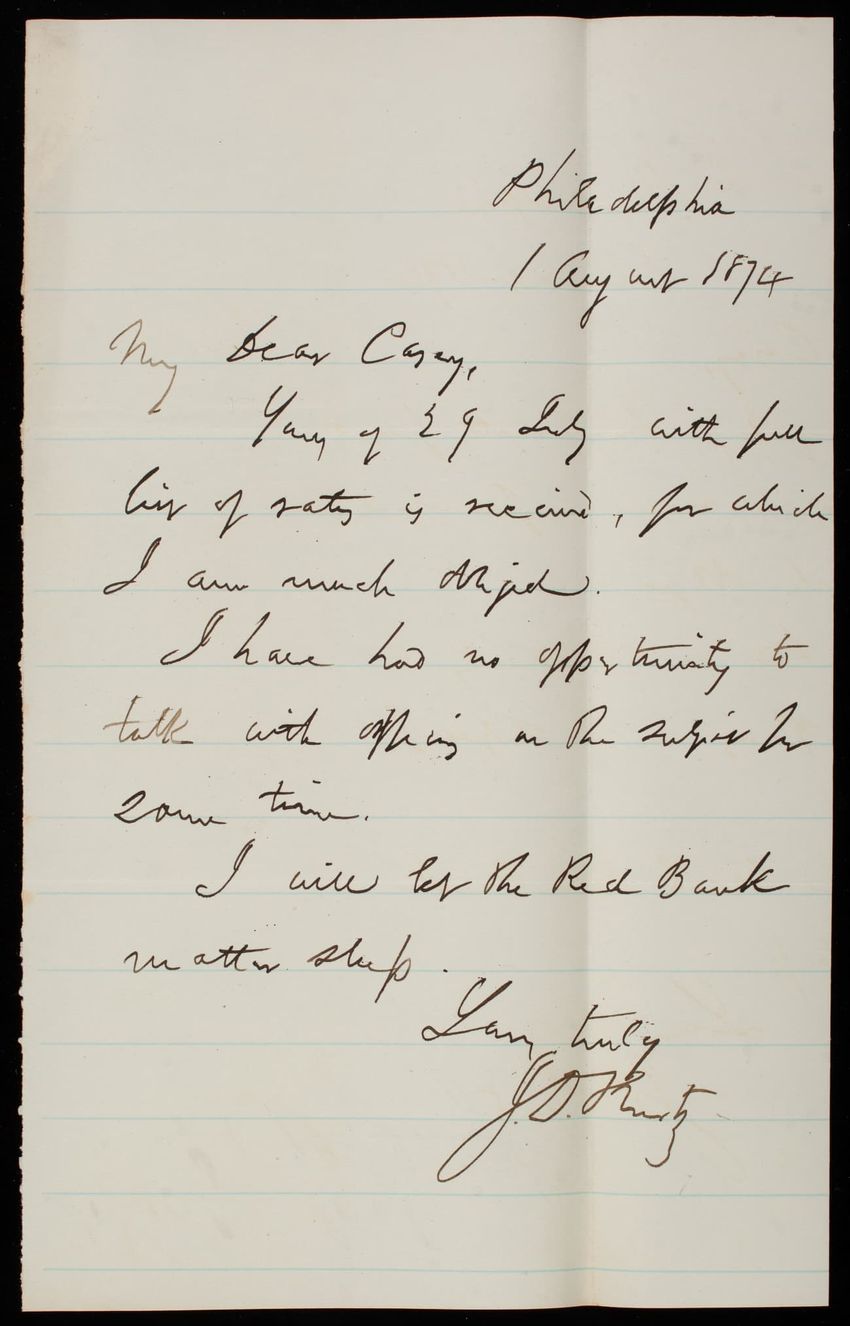 Philadelphia
1 August 1874
My Dear Casey,
Yours of 29 July with full
list of rates is received, for which
I am much obliged.
I have had no opportunity to
talk with officers on the subject for
some time.
I will let the Red Bank
matter sleep.
Yours truly
J.D. Kurtz